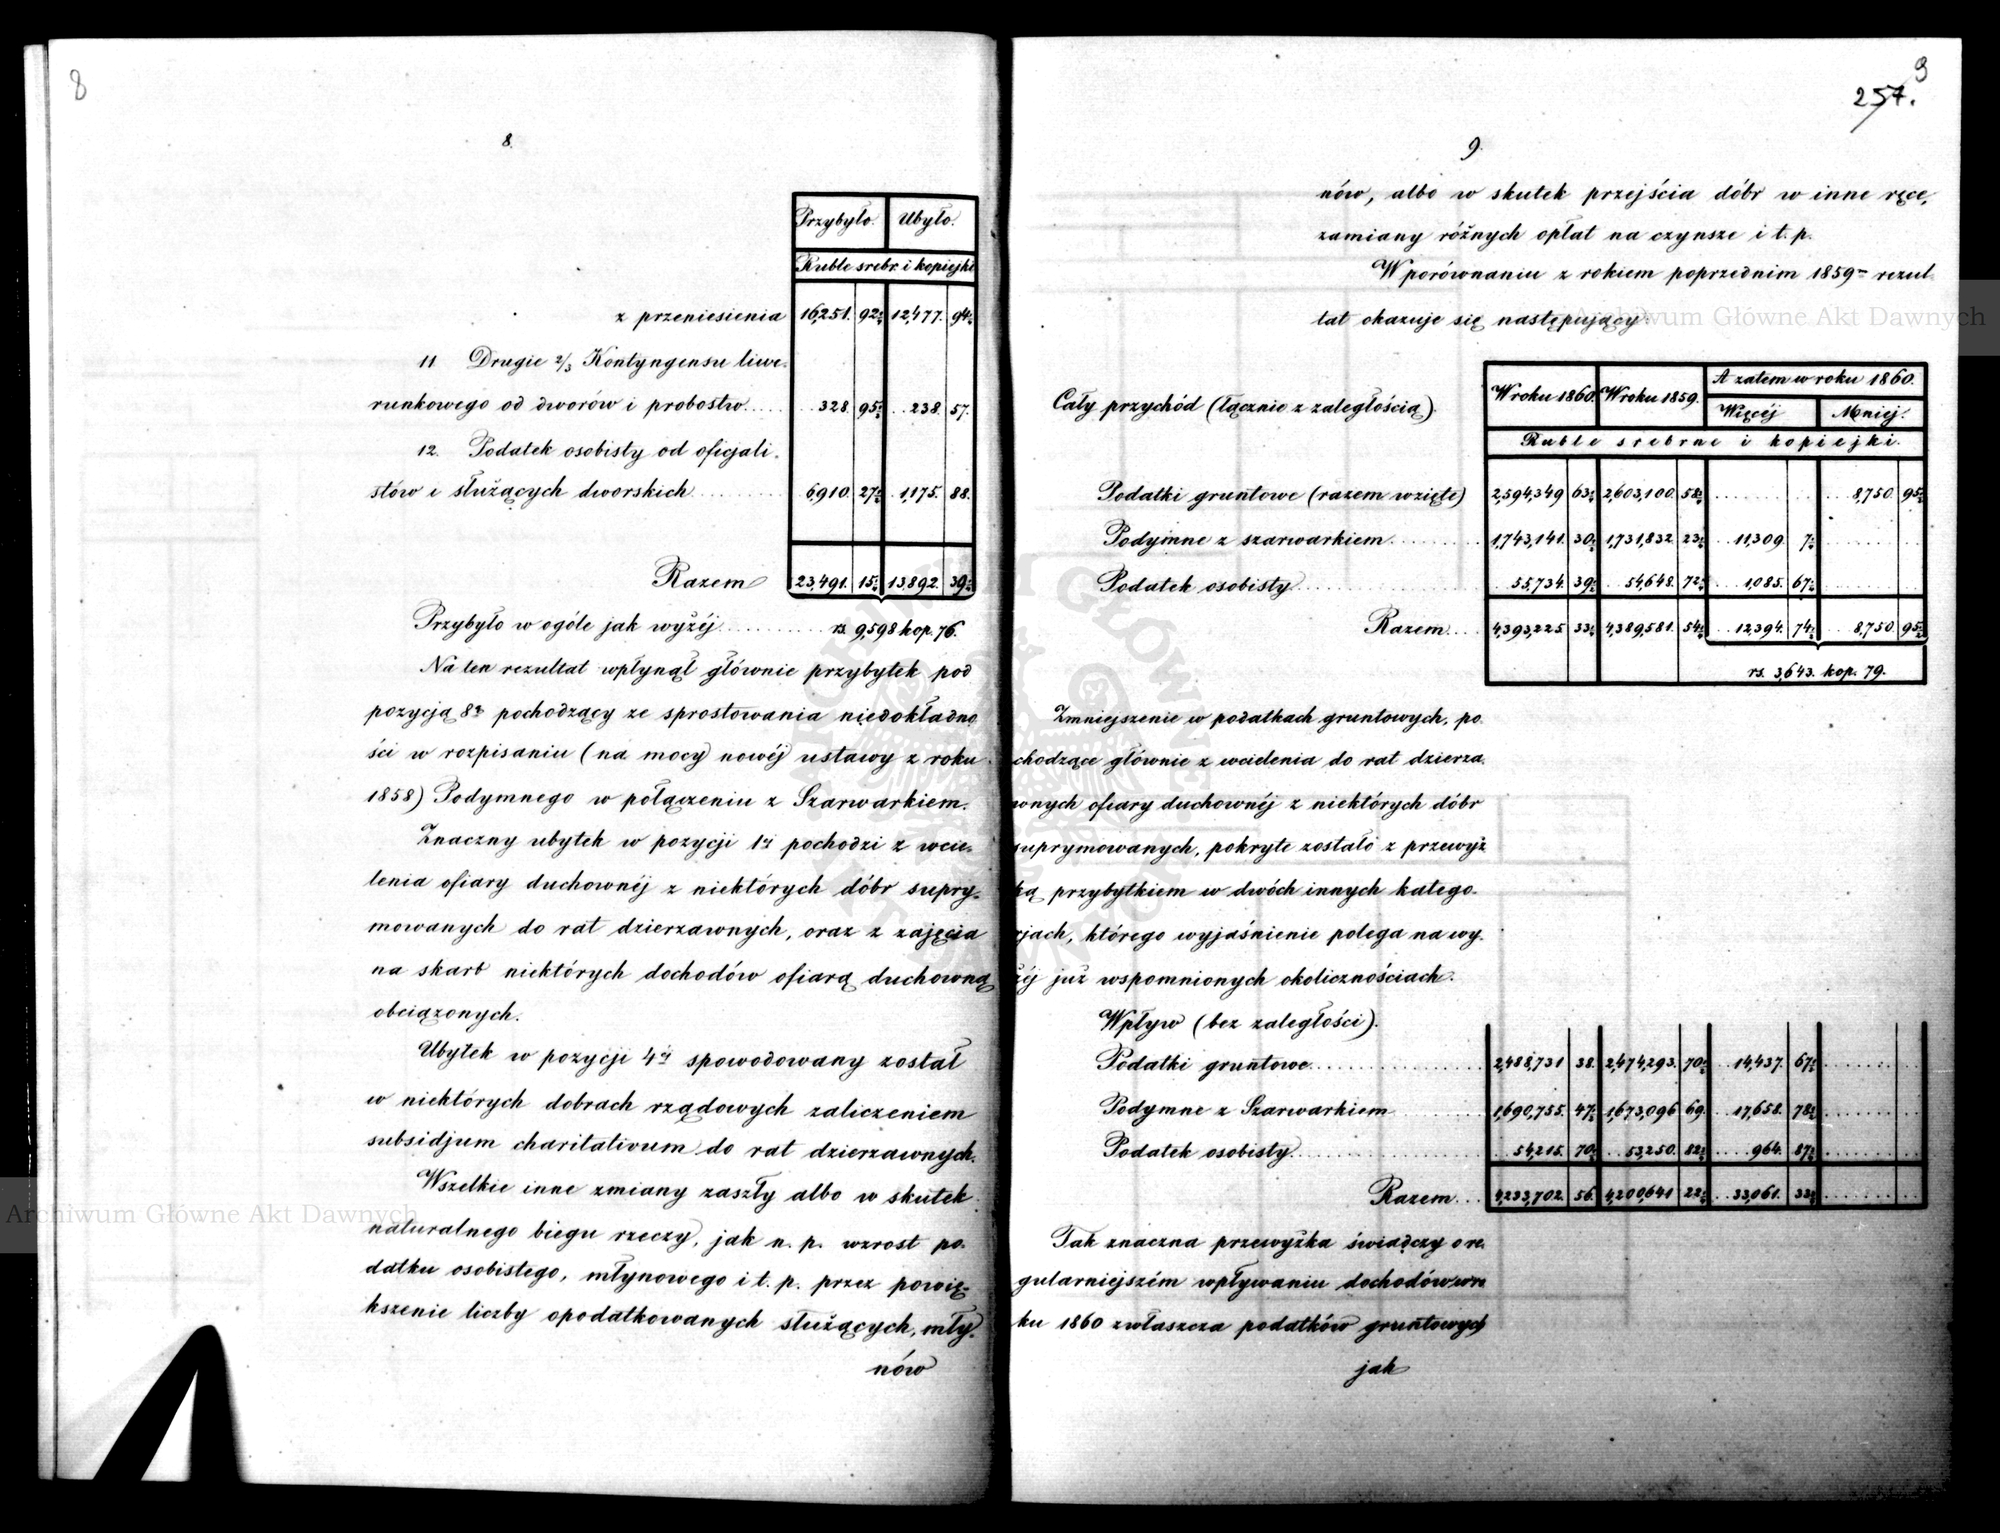 8
8.
Przybyło. Ubyło.
Ruble srebr. i kopiejki
z przeniesienia 16,251. 92½ 12,477. 94½
11 Drugie 2/3 Kontyngensu liwe-
runkowego od dworów i probostw..... 328. 95½ 238. 57.
12. Podatek osobisty od oficjali-
stów i służących dworskich......... 6,910. 27½ 1,175. 88.
Razem 23,491. 15½ 13,892. 39½
Przybyło w ogóle jak wyżéj......... rs. 9,598 kop. 76.
Na ten rezultat wpłynął głównie przybytek pod
pozycją 8ą pochodzący ze sprostowania niedokładno
ści w rozpisaniu (na mocy nowéj ustawy z roku
1858) Podymnego w połączeniu z Szarwarkiem.
Znaczny ubytek w pozycji 1éj pochodzi z wcie-
lenia ofiary duchownéj z niektórych dóbr supry-
mowanych do rat dzierzawnych, oraz z zajęcia
na skarb niektórych dochodów ofiarą duchowną
obciążonych.
Ubytek w pozycji 4éj spowodowany został
w niektórych dobrach rządowych zaliczeniem
subsidjum charitativum do rat dzierzawnych.
Wszelkie inne zmiany zaszły albo w skutek
naturalnego biegu rzeczy, jak n. p. wzrost po-
datku osobistego, młynowego i t. p. przez powię-
kszenie liczby opodatkowanych służących, mły-
nów
9
257.
9.
nów, albo w skutek przejścia dóbr w inne ręce,
zamiany różnych opłat na czynsze i t. p.
W porównaniu z rokiem poprzednim 1859m rezul-
tat okazuje się następujący:
Cały przychód (łącznie z zaległością). W roku 1860. W roku 1859. A zatem w roku 1860.
Więcéj Mniej.
Ruble srebrne i kopiejki.
Podatki gruntowe (razem wzięte) 2,594,349 63½ 2,603,100. 58½ 8,750. 95½
Podymne z szarwarkiem......... 1,743,141. 30½ 1,731,832 23½ 11,309 7½
Podatek osobisty............ 55,734. 39½ 54,648. 72½ 1,085. 67½
Razem.... 4,393,225 33½ 4,389,581. 54½ 12,394. 74½ 8,750. 95½
rs. 3,643. kop. 79.
Zmniejszenie w podatkach gruntowych, po
chodzące głównie z wcielenia do rat dzierza-
wnych ofiary duchownéj z niektórych dóbr
suprymowanych, pokryte zostało z przewyż
ką przybytkiem w dwóch innych katego-
rjach, którego wyjaśnienie polega na wy-
żéj już wspomnionych okolicznościach.
Wpływ (bez zaległości).
Podatki gruntowe............ 2,488,731 38. 2,474,293. 70½ 14,437. 67½
Podymne z Szarwarkiem 1,690,755. 47½ 1,673,096 69. 17,658. 78½
Podatek osobisty............ 54,215. 70½ 53,250. 82½ 964. 87½
Razem... 4,233,702. 56. 4,200,641 22½ 33,061. 33½
Tak znaczna przewyżka świadczy o re-
gularniejszém wpływaniu dochodów w ro
ku 1860 zwłaszcza podatków gruntowych
jak
Archiwum Główne Akt Dawnych
Archiwum Główne Akt Dawnych